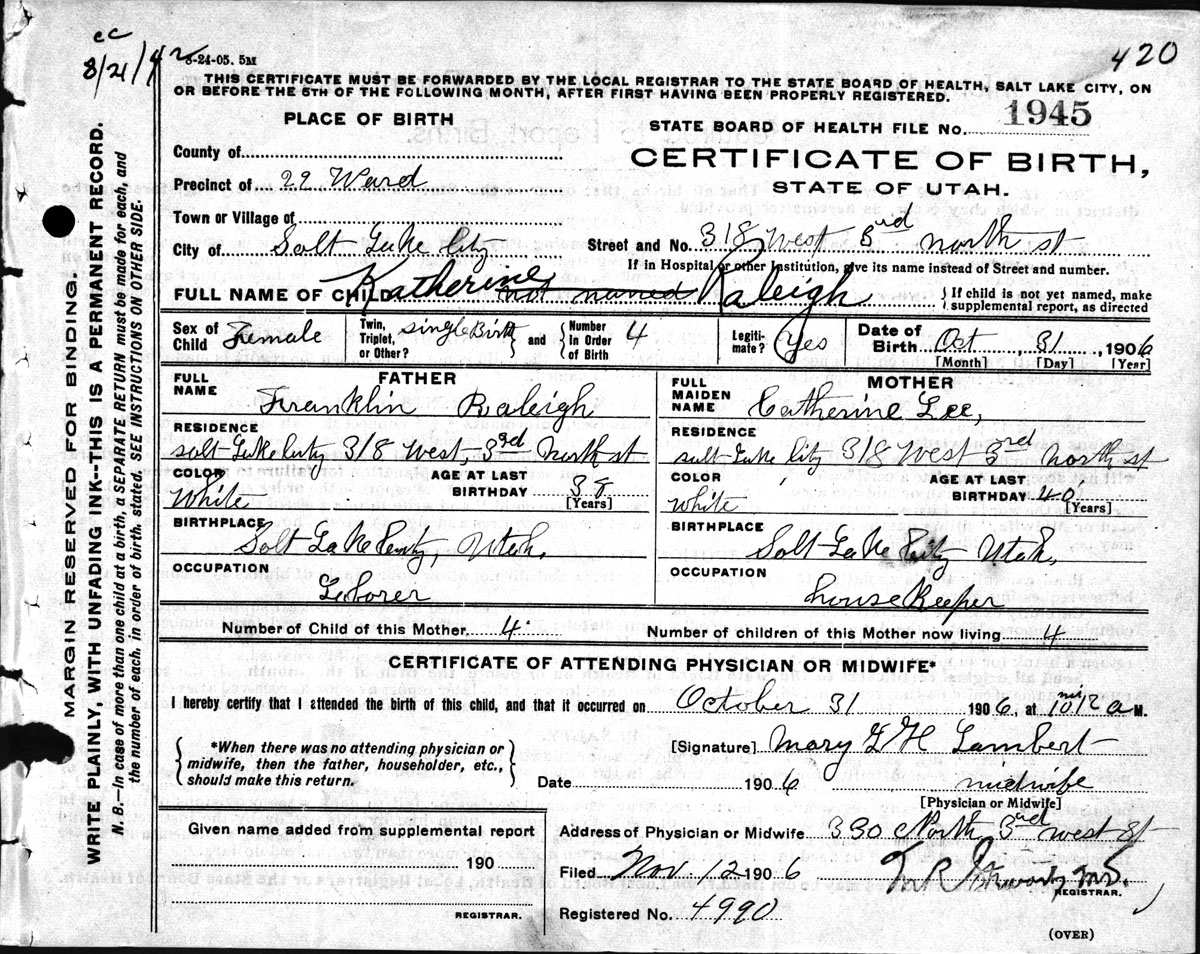 cc
8/21/42
420
8-24-05. 5M
THIS CERTIFICATE MUST BE FORWARDED BY THE LOCAL REGISTRAR TO THE STATE BOARD OF HEALTH, SALT LAKE CITY, ON
OR BEFORE THE 5TH OF THE FOLLOWING MONTH, AFTER FIRST HAVING BEEN PROPERLY REGISTERED.
PLACE OF BIRTH
STATE BOARD OF HEALTH FILE No. 1945
County of
CERTIFICATE OF BIRTH,
STATE OF UTAH.
Precinct of 22 Ward
Town or Village of
City of Salt Lake City
Street and No. 318 West 3rd north st
If in Hospital or other Institution, give its name instead of Street and number.
FULL NAME OF CHILD Katherine not named Raleigh
{ If child is not yet named, make
supplemental report, as directed
Sex of Child Female
Twin, Triplet, or Other? single Birth } and { Number In Order of Birth 4
Legiti-mate? Yes
Date of Birth Oct, 31, 1906
[Month] [Day] [Year]
FATHER
FULL NAME Franklin Raleigh
RESIDENCE
Salt Lake City 318 West, 3rd North st
COLOR White
AGE AT LAST BIRTHDAY 38
[Years]
BIRTHPLACE
Salt Lake City, Utah.
OCCUPATION
Laborer
MOTHER
FULL MAIDEN NAME Catherine Lee,
RESIDENCE
Salt Lake City 318 West 3rd north st
COLOR White
AGE AT LAST BIRTHDAY 40
[Years]
BIRTHPLACE
Salt Lake City Utah,
OCCUPATION
House Keeper
Number of Child of this Mother 4
Number of children of this Mother now living 4
CERTIFICATE OF ATTENDING PHYSICIAN OR MIDWIFE*
I hereby certify that I attended the birth of this child, and that it occurred on October 31 1906, at 10 12 a M.
{ *When there was no attending physician or
midwife, then the father, householder, etc.,
should make this return. }
[Signature] Mary H Lambert
Date 1906 midwife
[Physician or Midwife]
Given name added from supplemental report
190
REGISTRAR.
Address of Physician or Midwife 330 North 3rd west St
Filed Nov 12 1906
REGISTRAR.
Registered No. 4990
(OVER)
MARGIN RESERVED FOR BINDING.
WRITE PLAINLY, WITH UNFADING INK--THIS IS A PERMANENT RECORD.
N. B.—In case of more than one child at a birth, a SEPARATE RETURN must be made for each, and
the number of each, in order of birth, stated. SEE INSTRUCTIONS ON OTHER SIDE.